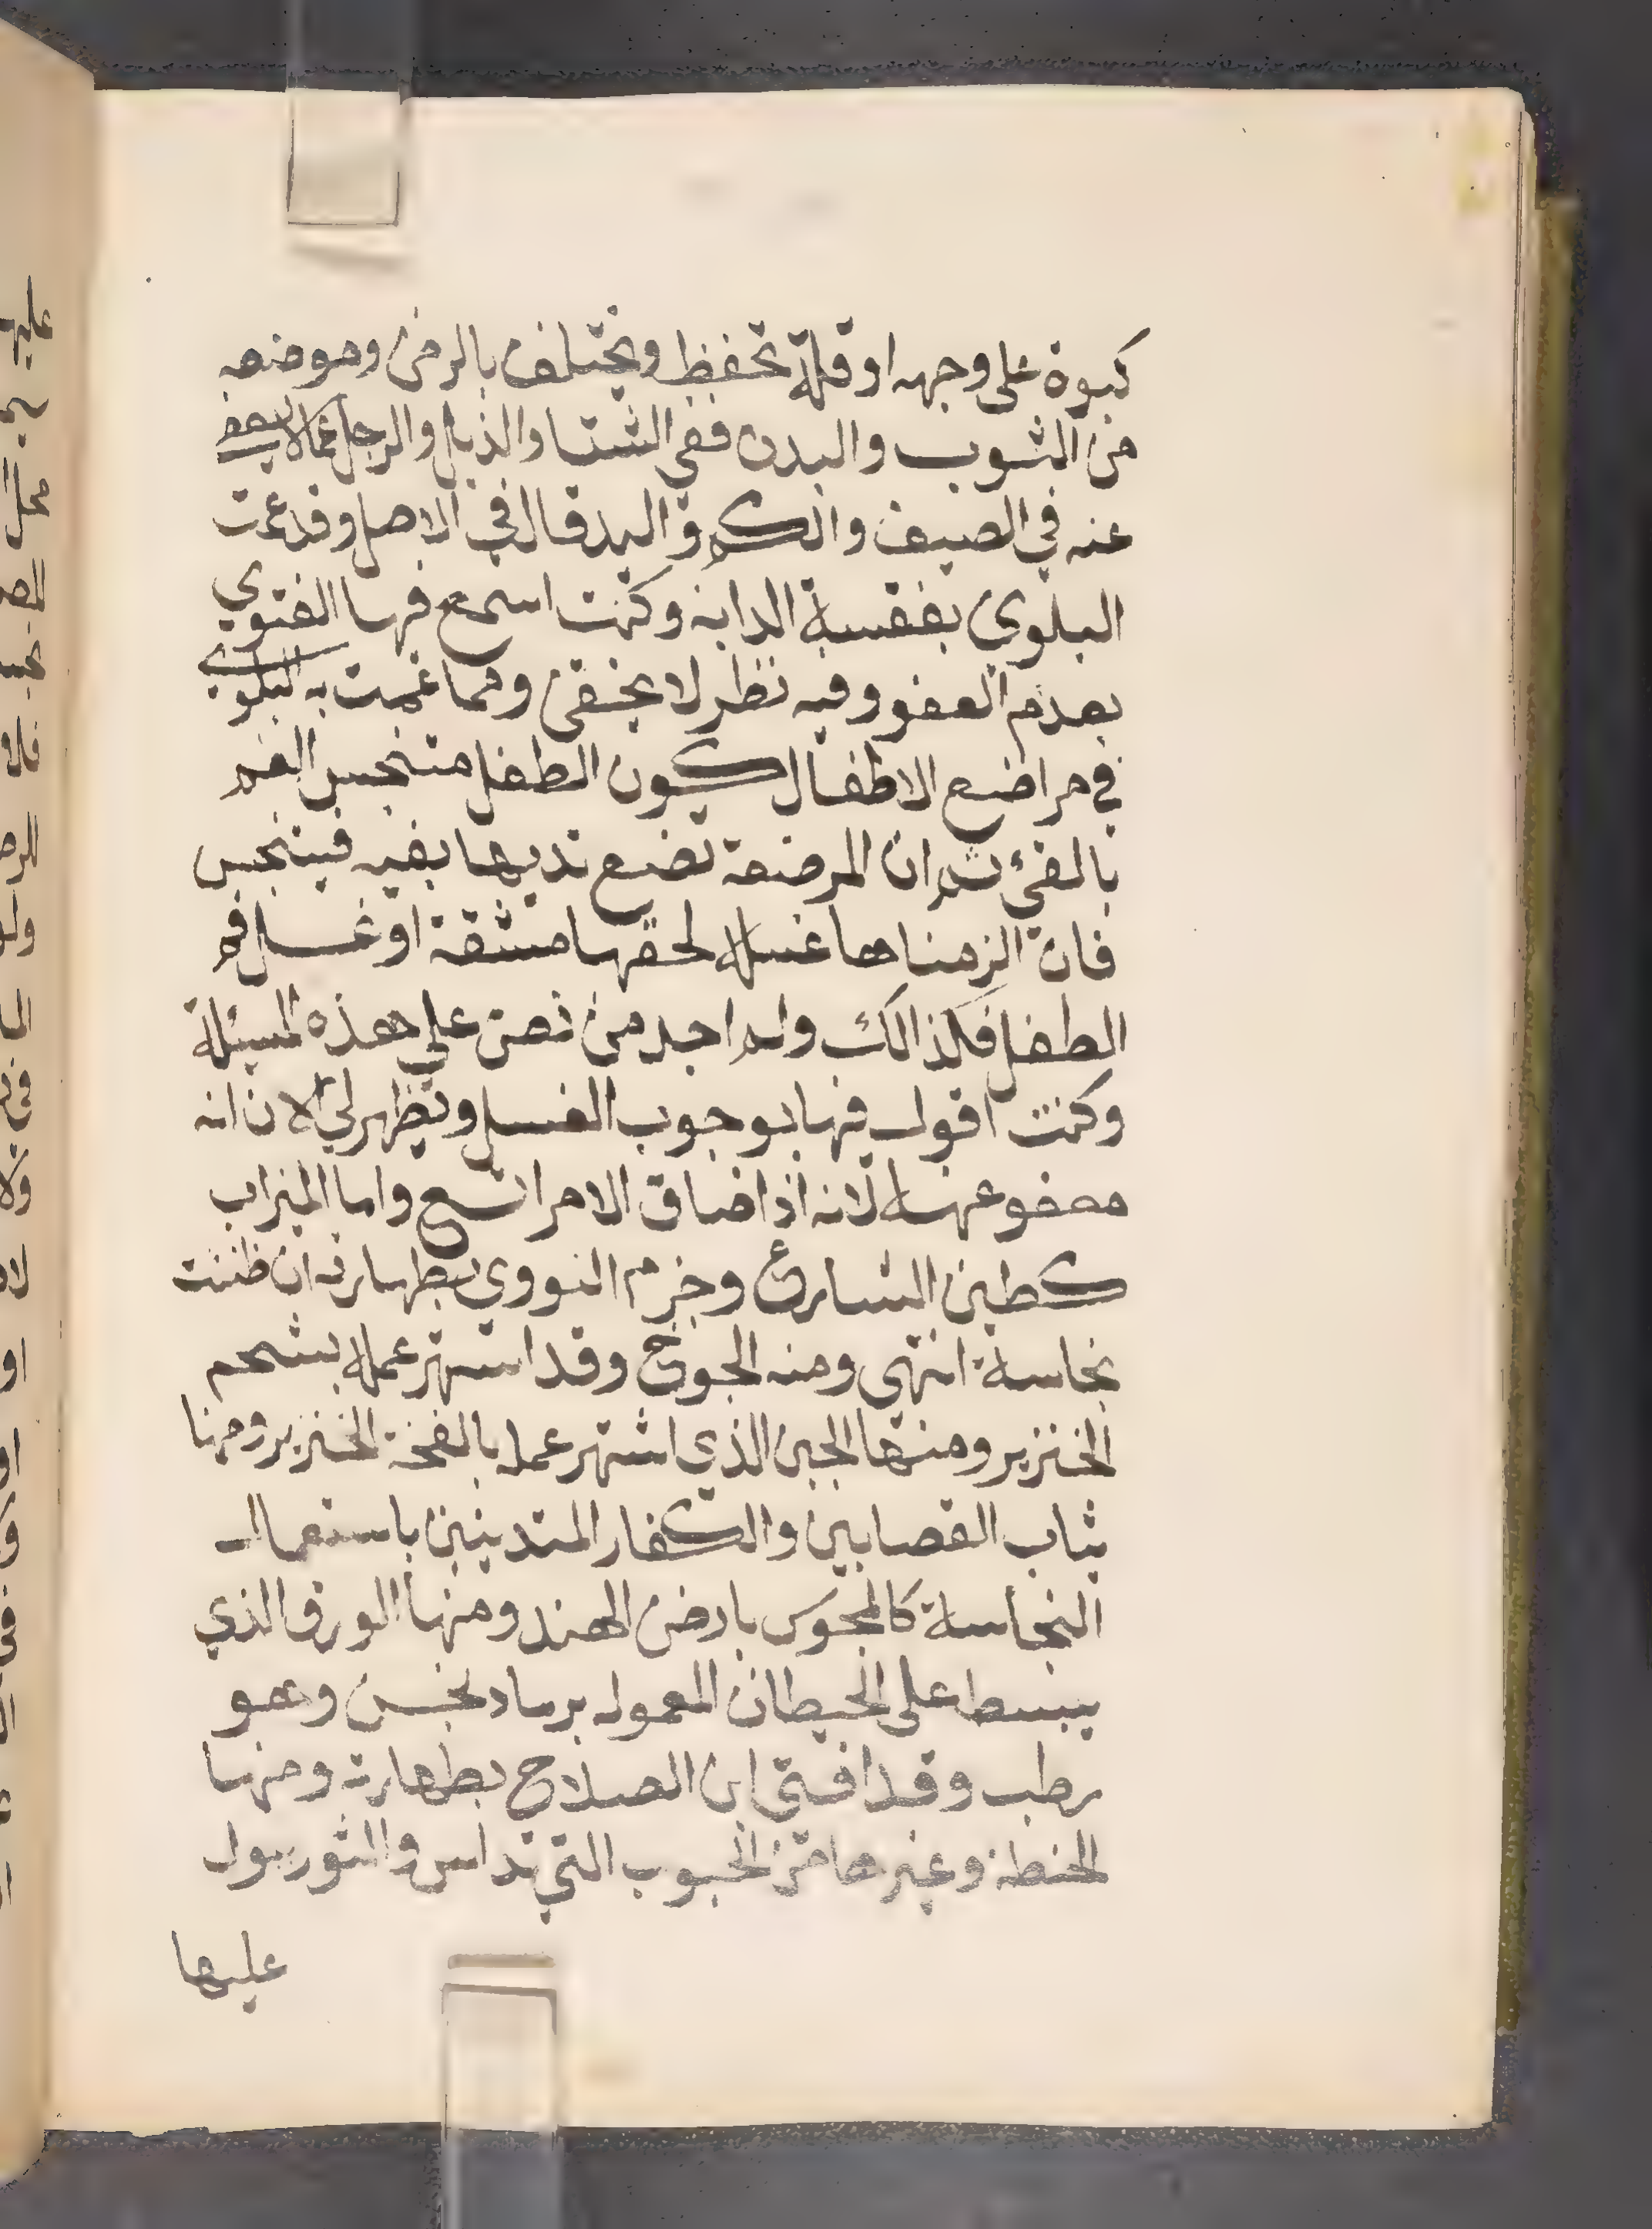 كبوة على وجهه او قلة تحفظ ويختلف بالزمن وموضعه
من الثوب والبدن ففي الشتا والذيل والرجل عما لا يعفى
عنه في الصيف والكم واليد قال في الاصل وقد عمت
البلوى بفقسة الداية وكنت اسمع فيها الفتوى
بعدم العفو وفيه نظر لا يخفى ومما عمت به البلوى
في مراضع الاطفال كون الطفل متنجس الفم
بالقيء ثم ان المرضعة تضع ثديها بفيه فيتنجس
فان الزمناها غسله لحقها مشقة او غسل فم
الطفل فكذالك ولم اجد من نص على هذه المسئلة
وكنت اقول فيها بوجوب الغسل ويظهر لي الان انه
معفو عنه لانه اذا ضاق الامر اتسع واما الميزاب
كطين الشارع وجزم النووي بطهارته ان ظننت
نجاسة انتهى ومنه الجوخ وقد اشتهر عمله بشحم
الخنزير ومنها الجبن الذي اشتهر عمله بالفحة الخنزير ومنها
ثياب القصابين والكفار المتدينين باستعمال
النجاسة كالمجوس بارض الهند ومنها الورق الذي
يبسط على الحيطان المعمول برماد نجس وهو
رطب وقد افتى ابن الصلاح بطهارته ومنها
الحنطة وغيرها من الحبوب التي تداس والثور يبول
عليها